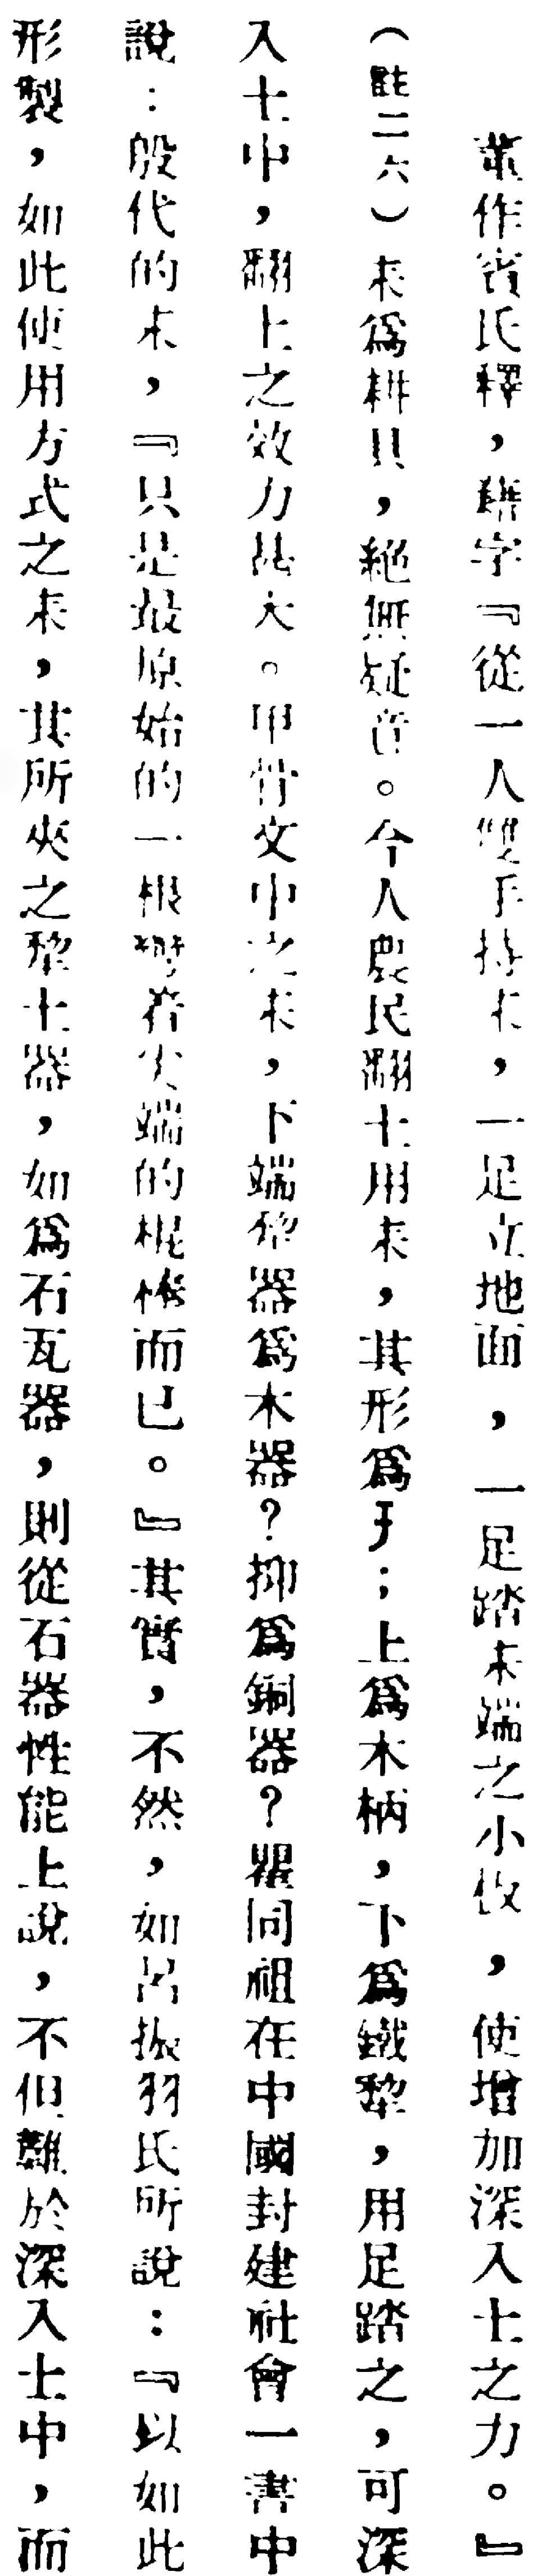 董作賓氏釋，耤字『從一人雙手持耒，一足立地面，一足踏耒端之小枚，使增加深入土之力。』
（註二六）耒爲耕具，絕無疑音。今人農民翻土用耒，其形爲于；上爲木柄，下爲鐵犂，用足踏之，可深
入土中，翻土之效力甚大。甲骨文中之耒，下端犂器爲木器？抑爲銅器？瞿同祖在中國封建社會一書中
說：殷代的耒，『只是最原始的一根彎着尖端的棍棒而已。』其實，不然，如呂振羽氏所說：『以如此
形製，如此使用方式之耒，其所夾之犂土器，如爲石瓦器，則從石器性能上說，不但難於深入土中，而